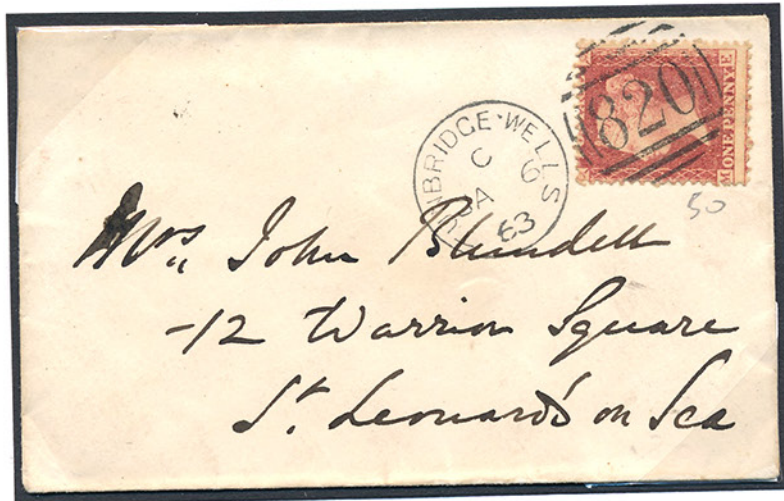 820
M ONE PENNY E
NBRIDGE-WELLS
C
6
63
50
Mrs, John Blundell
-12 Warrior Square
St. Leonard's on Sea